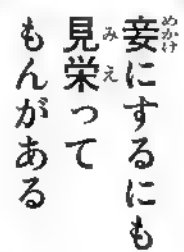 妾にするにも
見栄って
もんがある